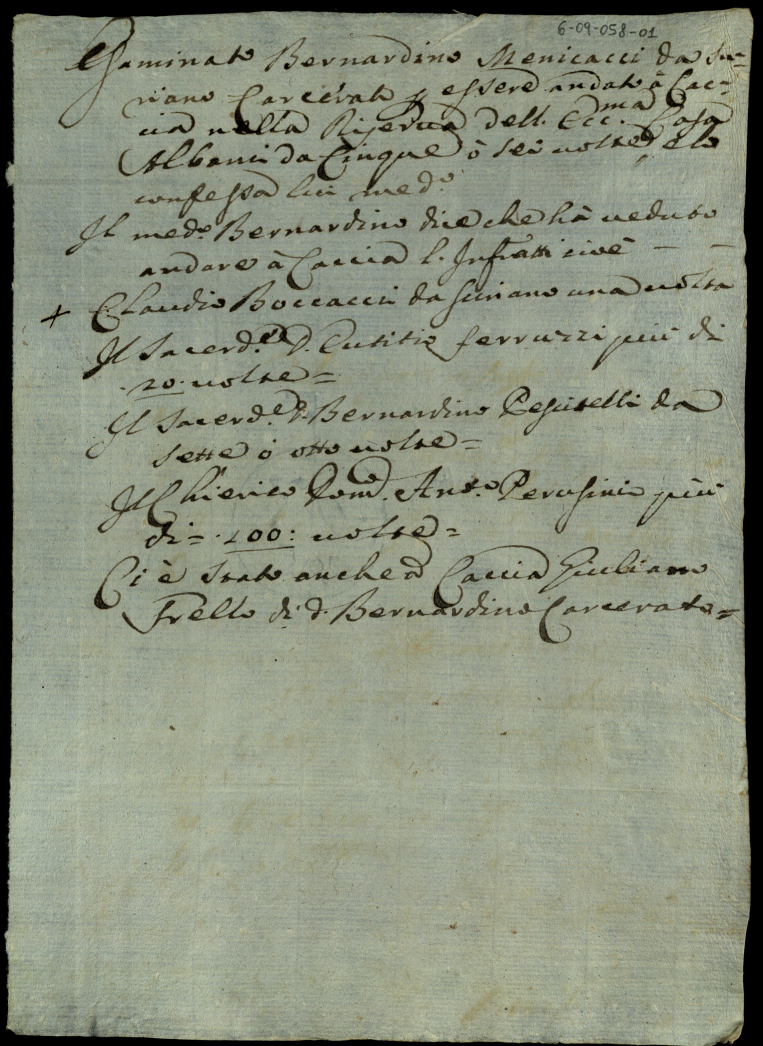 6-09-058-01
Esaminato Bernardino Menicacci da Su=
riano Carcerato p essere andato à Cac=
cia nella Riserva dell. Ecc.ma Casa
Albani da Cinque ò sei volte, e lo
confessa lui med.o
Il med.o Bernardino dice che hà veduto
andare à Caccia l. Infratti cioè — —
+ Claudio Boccacci da Suriano una volta
Il Sacerd.e D. Eutitio ferruzzi più di
20 volte =
Il Sacerd.e D. Bernardino Pesciarelli da
sette ò otto volte =
Il Chierico Dom.o Ant.o Perusini più
di = 100: volte =
Ci è stato anche à Caccia Giuliano
Frello di d. Bernardino Carcerato =